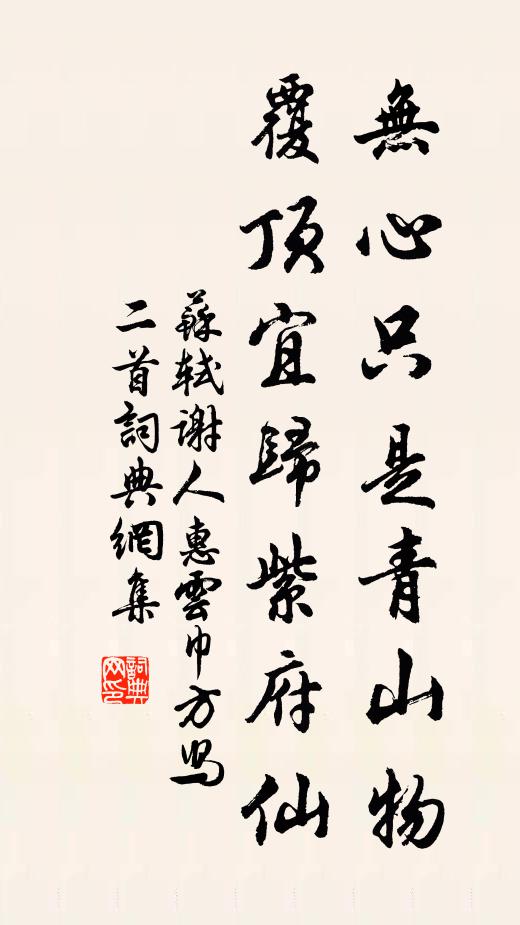 無心只是青山物
覆頂宜歸紫府仙
蘇軾谢人惠雲巾方舄
二首詞典網集
詞典网